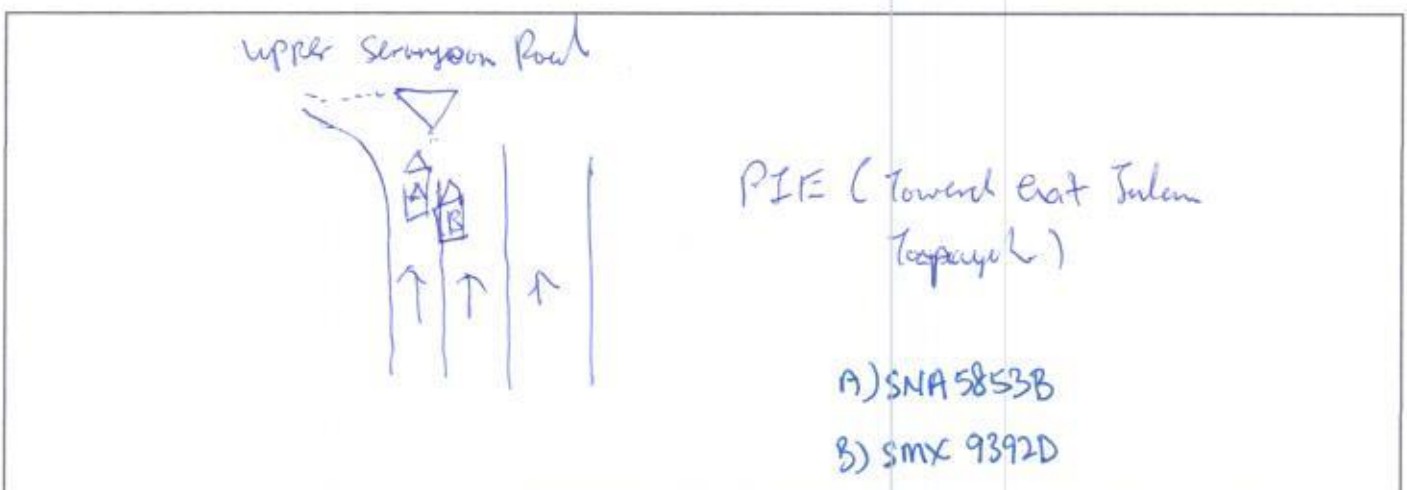 upper Serangoon Road
A
B
PIE (Toward exit Jalan
Toapayoh)
A) SNA 5853B
B) SMX 9392D